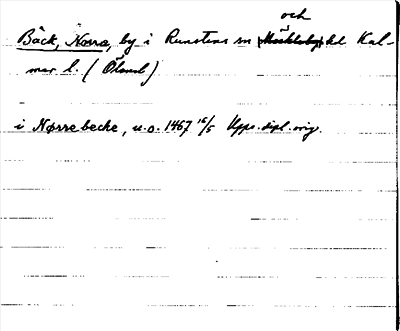 och
Bäck, Norra, by i Runstens sn Möckleby hd Kal-
mar l. (Öland)
i Nørrebecke, u.o. 1467 16/5 Upps. dipl. orig.